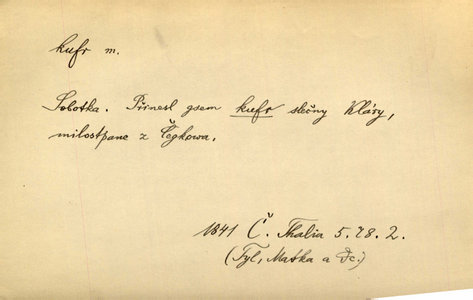 kufr m.
Sobotka. Přinesl gsem kufr slečny Kláry,
milostpane z Čegkowa.
1841 Č. Thalia 5.28.2.
(Tyl, Matka a Dc.)